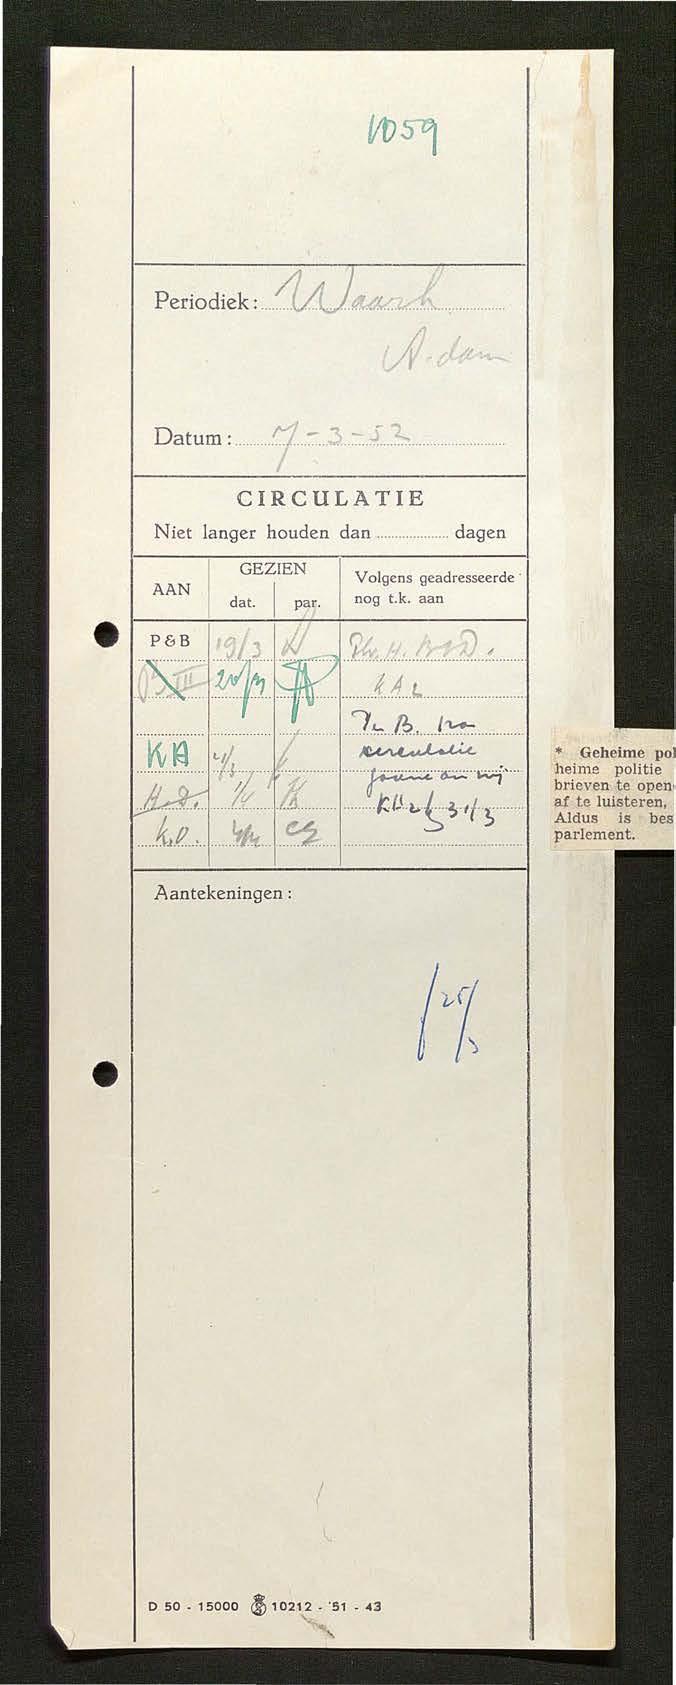 1059
Periodiek: Waarh
A.dam
Datum: 7-3-52
CIRCULATIE
Niet langer houden dan dagen
AAN
GEZIEN
dat. par.
Volgens geadresseerde
nog t.k. aan
P & B 19/3
B III 20/3
KA
H.D. 1/4
K.O.
Hr. H. BVD.
KA 2
Na
circulatie
gaarne aan mij
31/3
* Geheime pol
heime politie
brieven te open
af te luisteren,
Aldus is bes
parlement.
Aantekeningen:
25/3
D 50 - 15000 10212 - '51 - 43